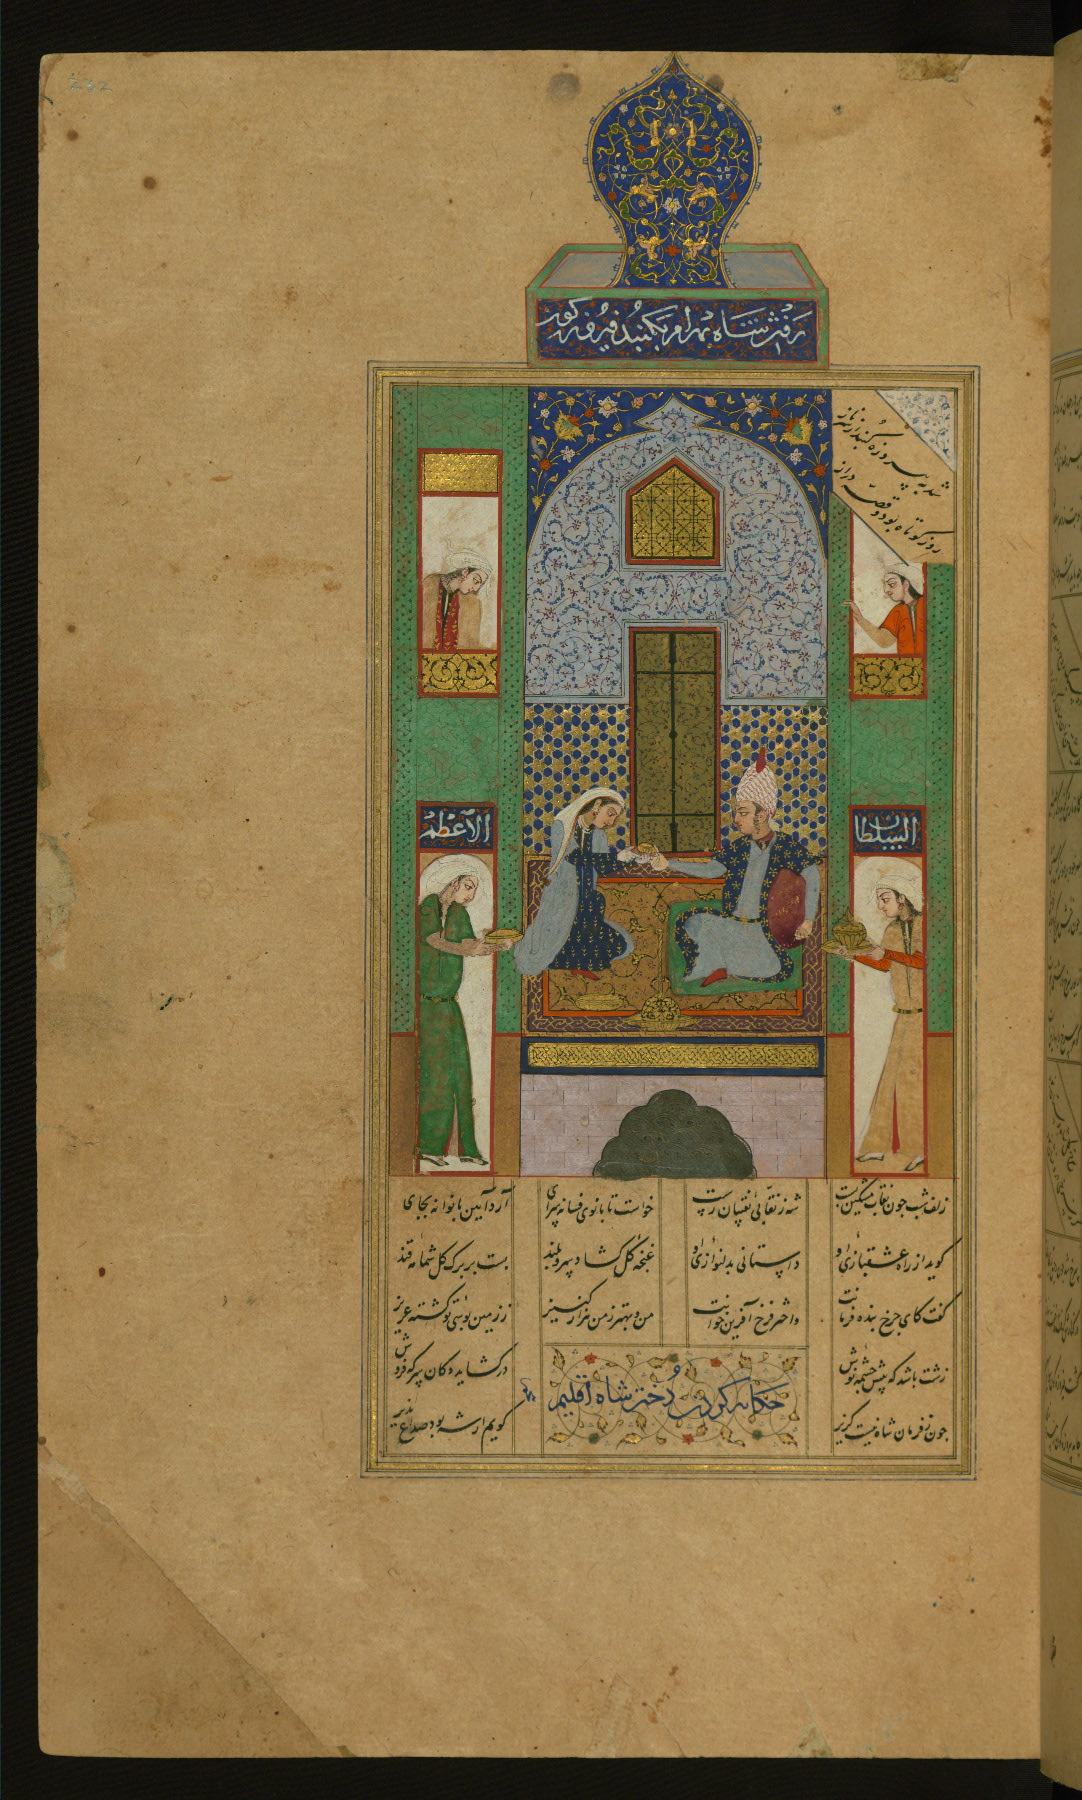 رفتن شاه بهرام بگنبد فیروزه
شد به پیروزه گنبد از سر ناز
روز کوتاه بود و قصه دراز
السلطان
الاعظم
زلف شب چون نقاب مشکین بست
شه ز نقابی نقیبان رست
خواست تا بانوی فسانه سرای
آرد آیین بانوانه بجای
گوید از راه عشقبازی او
داستانی بدلنوازی او
غنچه گل گشاد سرو بلند
بست بر برگ گل شمامه قند
گفت کای چرخ بنده فرمانت
واختر فرخ آفرین خوانت
من و بهتر ز من هزار کنیز
از زمین بوسی تو گشته عزیز
زشت باشد که پیش چشمه نوش
درگشاید دکان سرکه فروش
چون ز فرمان شاه نیست گزیر
گویم ار شه بود صداع پذیر
حکایت کردن دختر شاه اقلیم